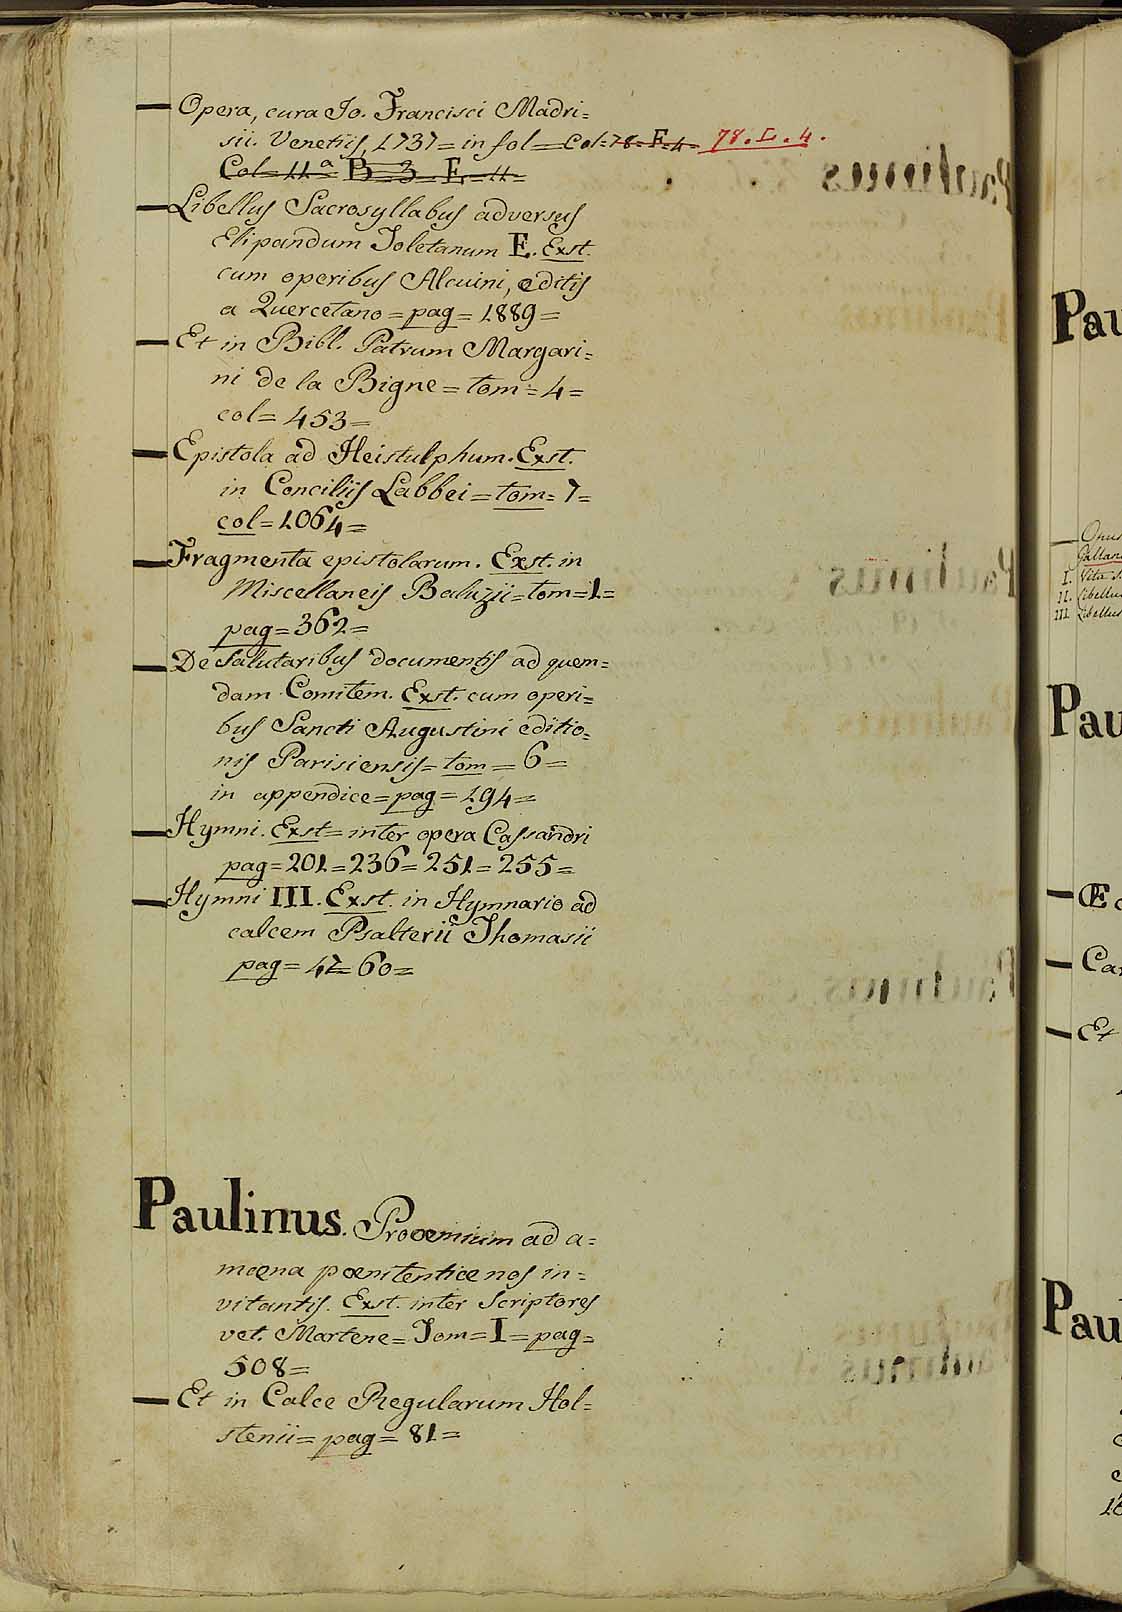 Opera, cura Jo. Francisci Madri=
sii. Venetiis, 1737= in fol= Col=78=F=4= 78. L. 4.
Col=11ª= B=3=E=11=
Libellus Sacrosyllabus adversus
Elipandum Toletanum E. Exst.
cum operibus Alcuini, editis
a Quercetano= pag= 1889=
Et in Bibl. Patrum Margari=
ni de la Bigne= tom= 4=
col= 453=
Epistola ad Heistulphum. Exst.
in Conciliis Labbei= tom= 7=
col= 1064=
Fragmenta epistolarum. Exst. in
Miscellaneis Baluzii= tom= 1=
pag= 362=
De salutaribus documentis ad quem=
dam Comitem. Exst. cum operi=
bus Sancti Augustini editio=
nis Parisiensis= tom= 6=
in appendice= pag= 194=
Hymni. Exst= inter opera Cassandri
pag= 201= 236= 251= 255=
Hymni III. Exst. in Hymnario ad
calcem Psalterii Thomasii
pag= 47= 60=
Paulinus. Prooemium ad a=
moena poenitentiae nos in=
vitantis. Exst. inter Scriptores
vet. Martene= Tom= I= pag=
508=
Et in Calce Regularum Hol=
stenii= pag= 81=
Pau
Opus
Galland
I. Vita
II. Libellus
III. Libellus
Pau
Œ
Car
Et
Pau